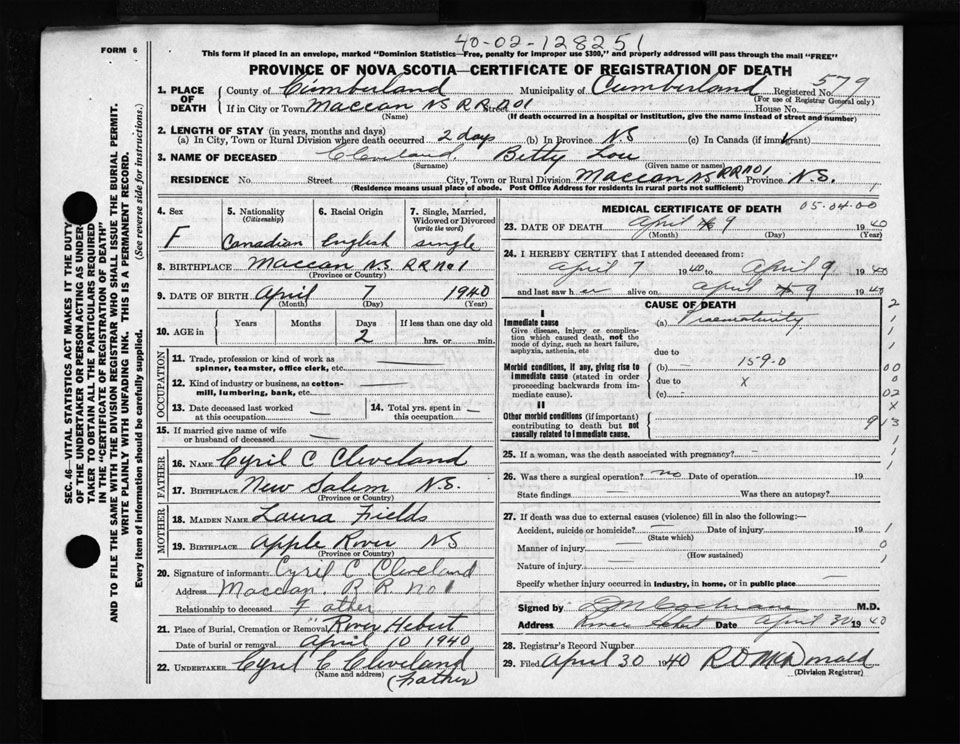 40-02-128251
FORM 6
This form if placed in an envelope, marked "Dominion Statistics—Free, penalty for improper use $300," and properly addressed will pass through the mail "FREE"
PROVINCE OF NOVA SCOTIA—CERTIFICATE OF REGISTRATION OF DEATH
1. PLACE OF DEATH
County of Cumberland Municipality of Cumberland Registered No. 579
(For use of Registrar General only)
If in City or Town Maccan NS RR no 1 Street House No.
(Name) (If death occurred in a hospital or institution, give the name instead of street and number)
2. LENGTH OF STAY (in years, months and days)
(a) In City, Town or Rural Division where death occurred 2 day (b) In Province NS (c) In Canada (if immigrant)
3. NAME OF DECEASED Cleveland Betty Lou
(Surname) (Given name or names)
RESIDENCE No. Street City, Town or Rural Division Maccan NS RR no 1 Province N.S.
(Residence means usual place of abode. Post Office Address for residents in rural parts not sufficient)
SEC. 46—VITAL STATISTICS ACT MAKES IT THE DUTY
OF THE UNDERTAKER OR PERSON ACTING AS UNDER-
TAKER TO OBTAIN ALL THE PARTICULARS REQUIRED
IN THE "CERTIFICATE OF REGISTRATION OF DEATH"
AND TO FILE THE SAME WITH THE DIVISION REGISTRAR WHO SHALL ISSUE THE BURIAL PERMIT.
WRITE PLAINLY WITH UNFADING INK. THIS IS A PERMANENT RECORD.
Every item of information should be carefully supplied. (See reverse side for instructions.)
4. Sex
F
5. Nationality
(Citizenship)
Canadian
6. Racial Origin
English
7. Single, Married,
Widowed or Divorced
(write the word)
single
8. BIRTHPLACE Maccan N.S. RR no 1
(Province or Country)
9. DATE OF BIRTH April 7 1940
(Month) (Day) (Year)
10. AGE in
Years Months Days If less than one day old
2 hrs. or min.
OCCUPATION
11. Trade, profession or kind of work as
spinner, teamster, office clerk, etc.
12. Kind of industry or business, as cotton-
mill, lumbering, bank, etc.
13. Date deceased last worked
at this occupation
14. Total yrs. spent in
this occupation
15. If married give name of wife
or husband of deceased
FATHER
16. NAME Cyril C Cleveland
17. BIRTHPLACE New Salem N.S.
(Province or Country)
MOTHER
18. MAIDEN NAME Laura Fields
19. BIRTHPLACE Apple River NS
(Province or Country)
20. Signature of informant Cyril C Cleveland
Address Maccan. R R. No 1
Relationship to deceased Father
21. Place of Burial, Cremation or Removal River Hebert
Date of burial or removal April 10 1940
22. UNDERTAKER Cyril C Cleveland
(Name and address) (Father)
MEDICAL CERTIFICATE OF DEATH 05.04.00
1
23. DATE OF DEATH April 9 1940
(Month) (Day) (Year)
24. I HEREBY CERTIFY that I attended deceased from:
April 7 1940 to April 9 1940
and last saw her alive on April 9 1940
CAUSE OF DEATH
I
Immediate cause
Give disease, injury or complica-
tion which caused death, not the
mode of dying, such as heart failure,
asphyxia, asthenia, etc
(a) Praematurity
due to
Morbid conditions, if any, giving rise to
immediate cause (stated in order
proceeding backwards from im-
mediate cause).
(b) 159.0
due to X
(c)
II
Other morbid conditions (if important)
contributing to death but not
causally related to immediate cause.
25. If a woman, was the death associated with pregnancy?
26. Was there a surgical operation? no Date of operation 19
State findings Was there an autopsy?
27. If death was due to external causes (violence) fill in also the following:—
Accident, suicide or homicide? Date of injury 19
(State which)
Manner of injury
(How sustained)
Nature of injury
Specify whether injury occurred in industry, in home, or in public place
Signed by M.D.
Address River Hebert Date April 30 1940
28. Registrar's Record Number
29. Filed April 30 1940 R D McDonald
(Division Registrar)